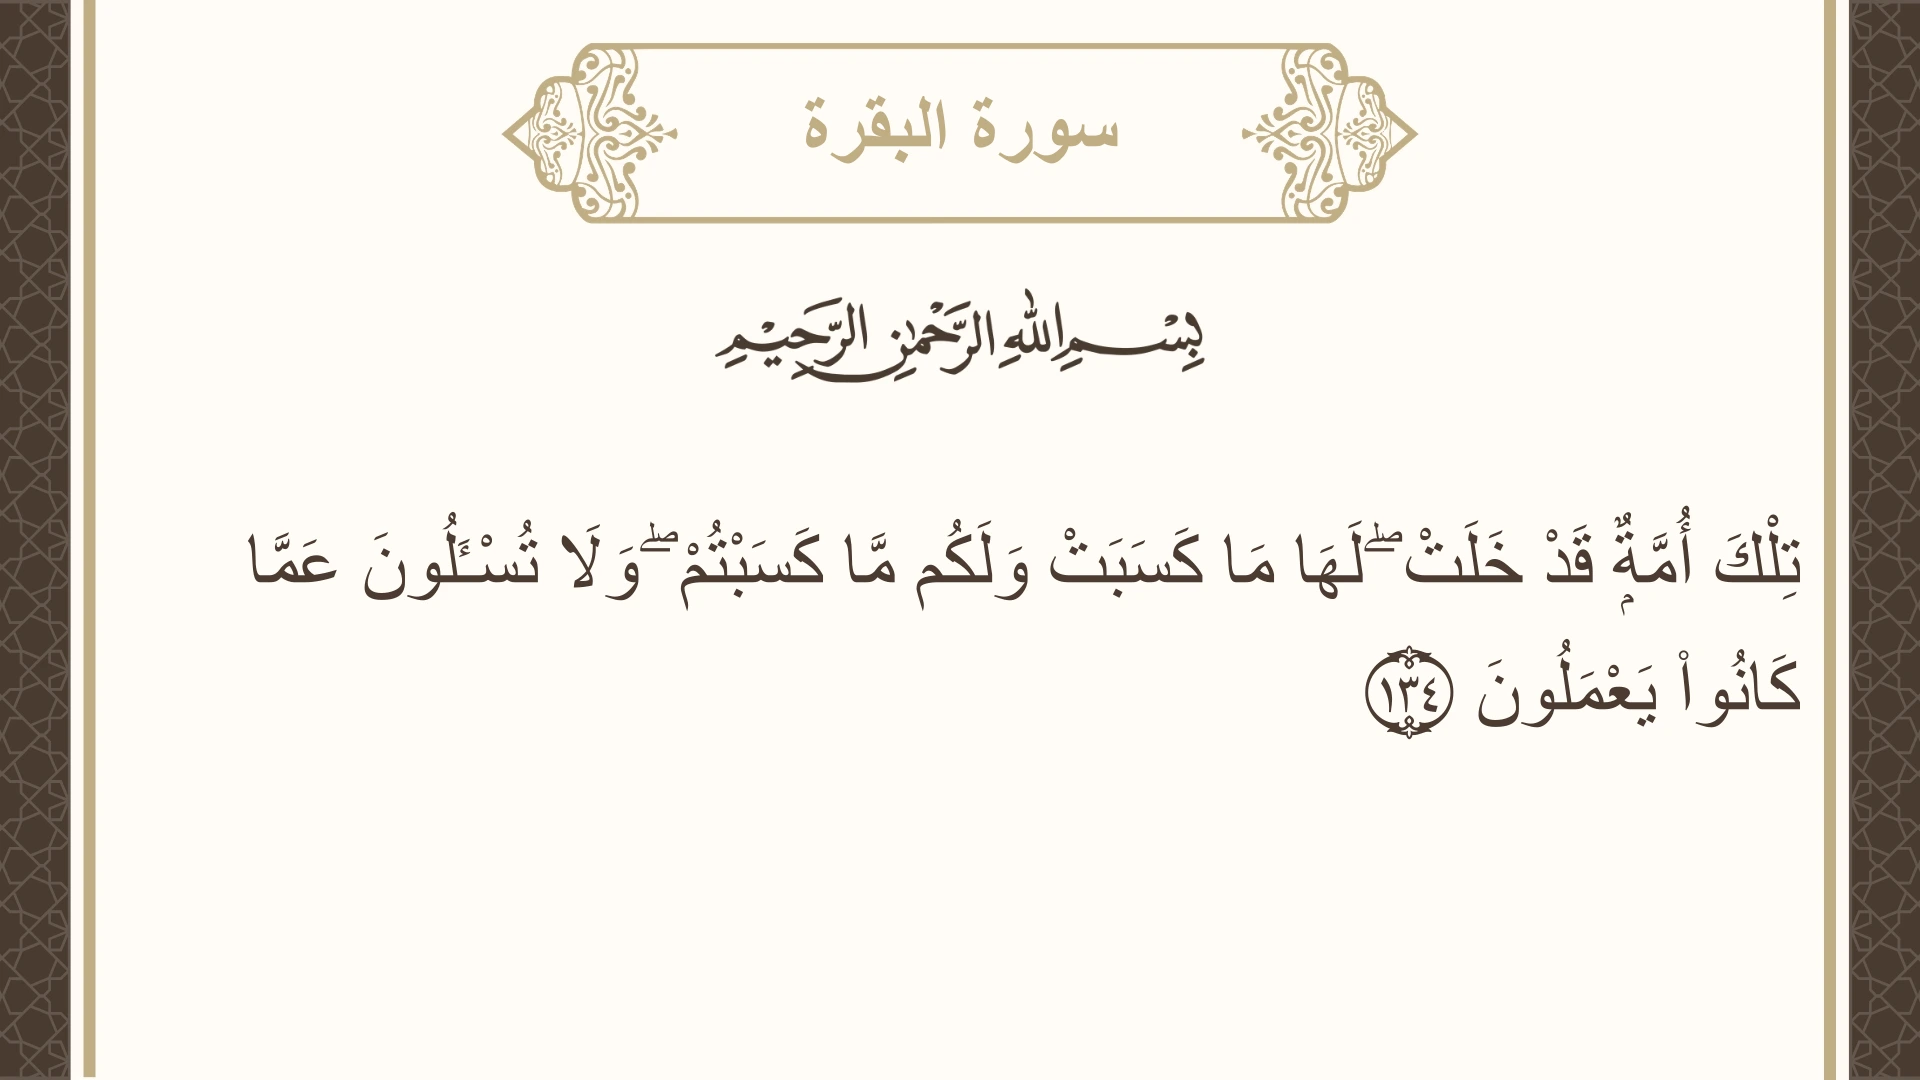 سورة البقرة
بِسْمِ اللهِ الرَّحْمٰنِ الرَّحِيْمِ
تِلْكَ أُمَّةٌۭ قَدْ خَلَتْ ۖ لَهَا مَا كَسَبَتْ وَلَكُم مَّا كَسَبْتُمْ ۖ وَلَا تُسْـَٔلُونَ عَمَّا
كَانُوا۟ يَعْمَلُونَ ١٣٤